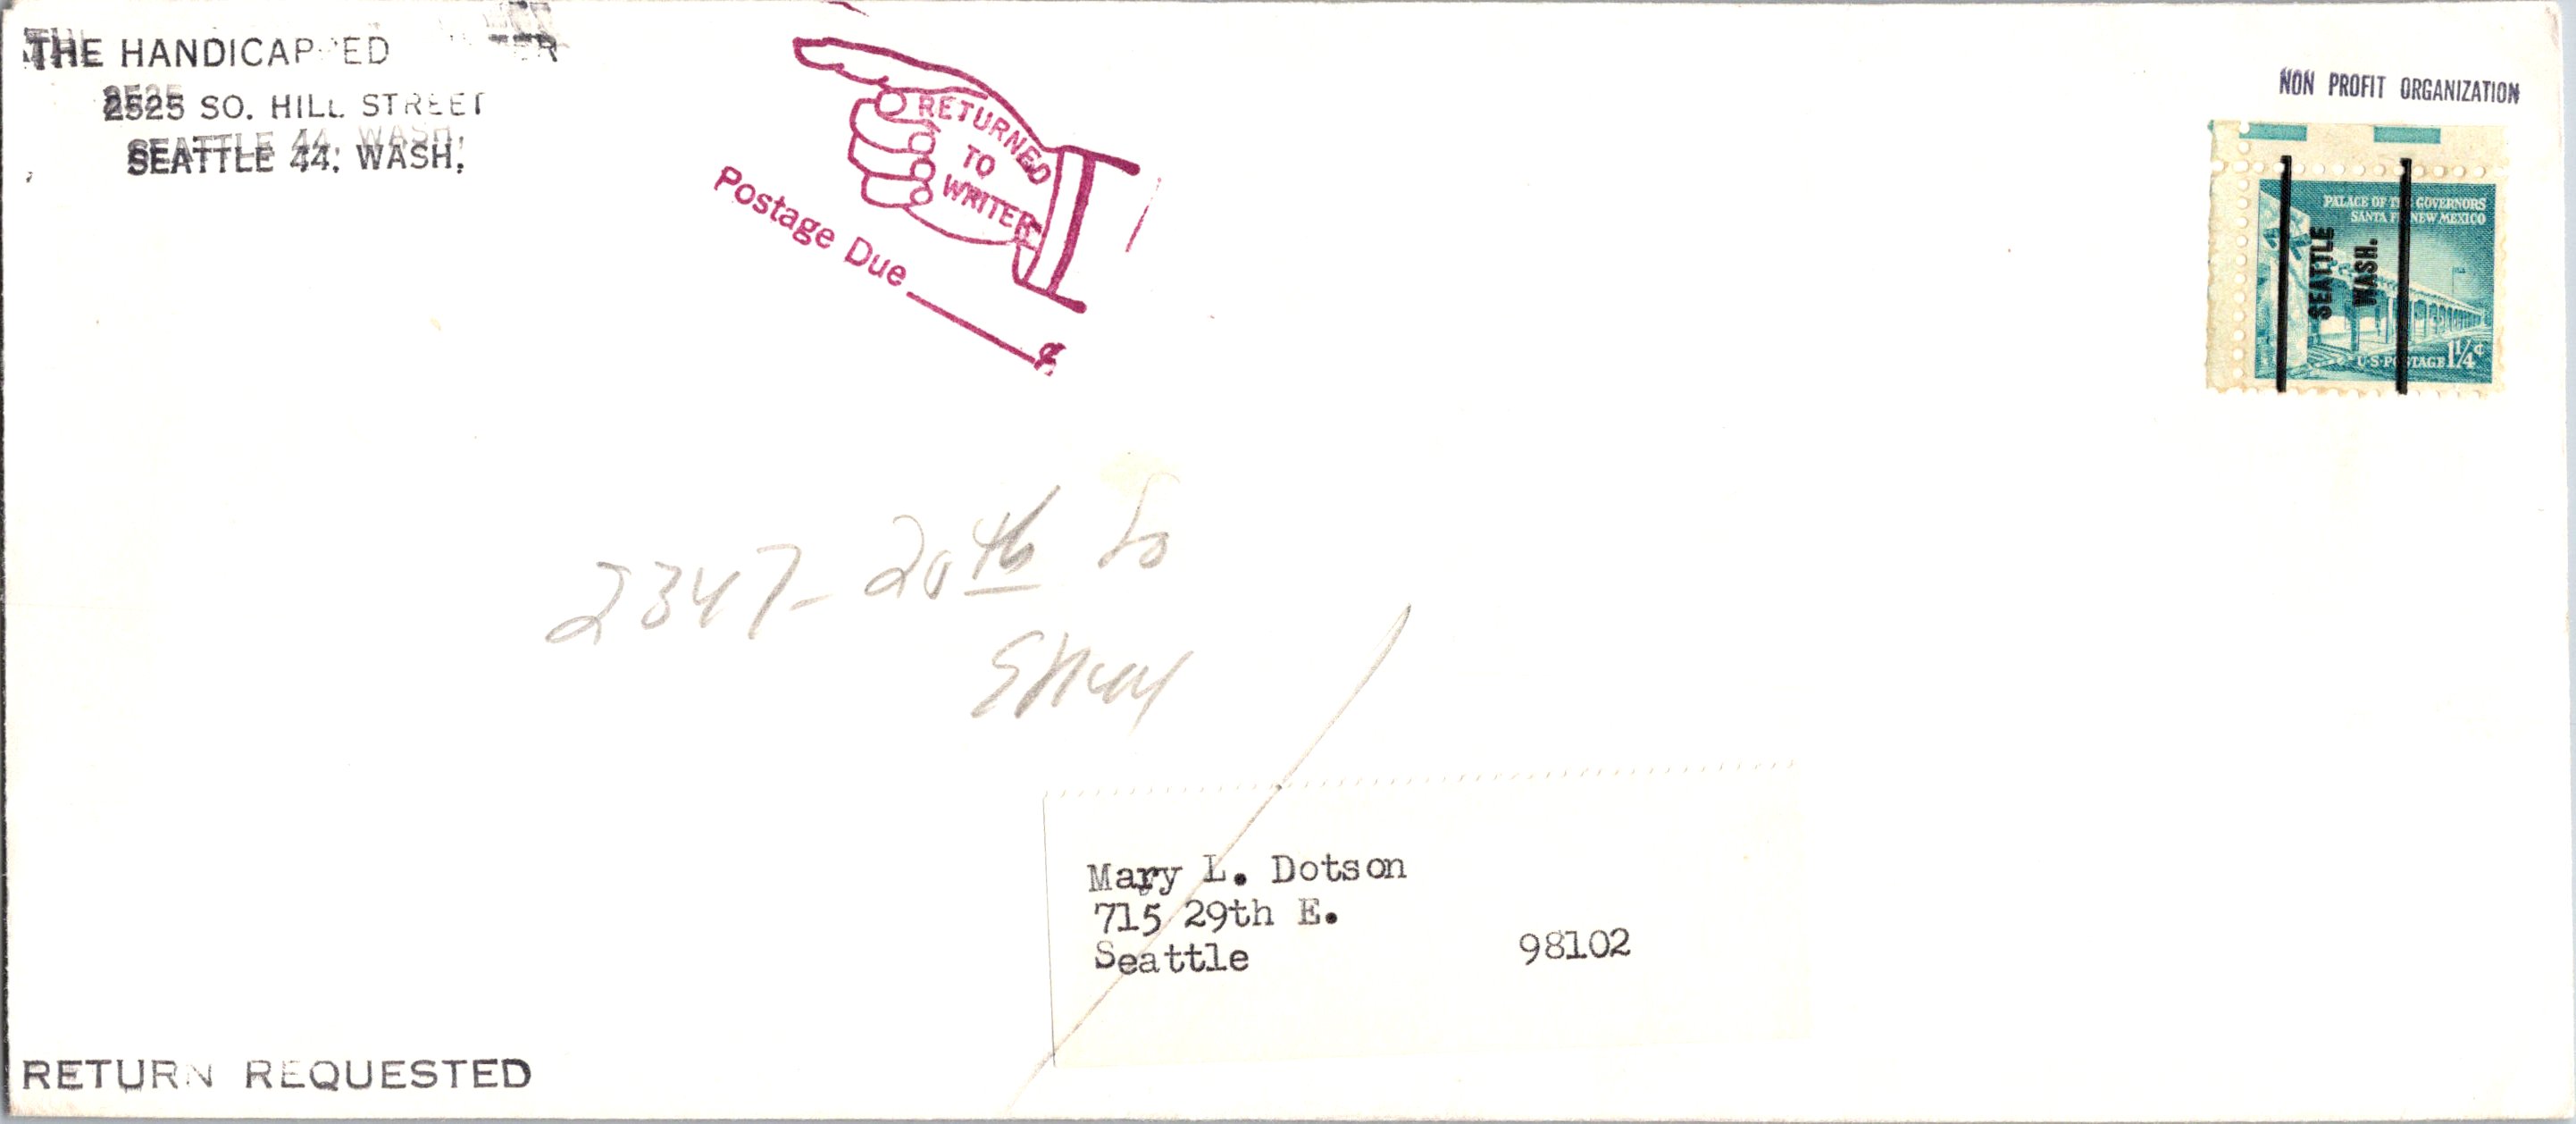 THE HANDICAPPED
2525 SO. HILL STREET
SEATTLE 44, WASH.
RETURNED
TO
WRITER
Postage Due ¢
NON PROFIT ORGANIZATION
PALACE OF THE GOVERNORS
SANTA FE NEW MEXICO
SEATTLE
WASH.
U·S·POSTAGE 1¼¢
2347- 20th So
Mary L. Dotson
715 29th E.
Seattle 98102
RETURN REQUESTED